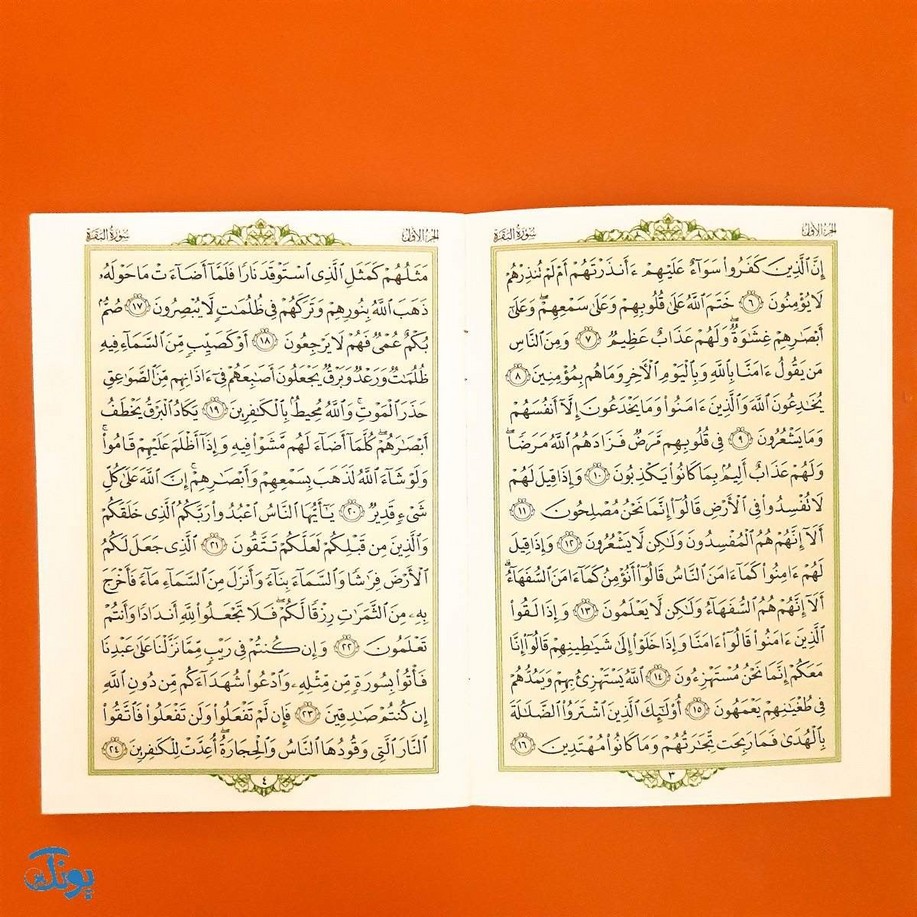 الجزء الأول
سورة البقرة
إِنَّ ٱلَّذِينَ كَفَرُواْ سَوَآءٌ عَلَيْهِمْ ءَأَنذَرْتَهُمْ أَمْ لَمْ تُنذِرْهُمْ
لَا يُؤْمِنُونَ ٦ خَتَمَ ٱللَّهُ عَلَىٰ قُلُوبِهِمْ وَعَلَىٰ سَمْعِهِمْ ۖ وَعَلَىٰٓ
أَبْصَٰرِهِمْ غِشَٰوَةٌ ۖ وَلَهُمْ عَذَابٌ عَظِيمٌ ٧ وَمِنَ ٱلنَّاسِ
مَن يَقُولُ ءَامَنَّا بِٱللَّهِ وَبِٱلْيَوْمِ ٱلْـَٔاخِرِ وَمَا هُم بِمُؤْمِنِينَ ٨
يُخَٰدِعُونَ ٱللَّهَ وَٱلَّذِينَ ءَامَنُواْ وَمَا يَخْدَعُونَ إِلَّآ أَنفُسَهُمْ
وَمَا يَشْعُرُونَ ٩ فِى قُلُوبِهِم مَّرَضٌ فَزَادَهُمُ ٱللَّهُ مَرَضًا ۖ
وَلَهُمْ عَذَابٌ أَلِيمٌۢ بِمَا كَانُواْ يَكْذِبُونَ ١٠ وَإِذَا قِيلَ لَهُمْ
لَا تُفْسِدُواْ فِى ٱلْأَرْضِ قَالُوٓاْ إِنَّمَا نَحْنُ مُصْلِحُونَ ١١
أَلَآ إِنَّهُمْ هُمُ ٱلْمُفْسِدُونَ وَلَٰكِن لَّا يَشْعُرُونَ ١٢ وَإِذَا قِيلَ
لَهُمْ ءَامِنُواْ كَمَآ ءَامَنَ ٱلنَّاسُ قَالُوٓاْ أَنُؤْمِنُ كَمَآ ءَامَنَ ٱلسُّفَهَآءُ ۗ
أَلَآ إِنَّهُمْ هُمُ ٱلسُّفَهَآءُ وَلَٰكِن لَّا يَعْلَمُونَ ١٣ وَإِذَا لَقُواْ
ٱلَّذِينَ ءَامَنُواْ قَالُوٓاْ ءَامَنَّا وَإِذَا خَلَوْاْ إِلَىٰ شَيَٰطِينِهِمْ قَالُوٓاْ إِنَّا
مَعَكُمْ إِنَّمَا نَحْنُ مُسْتَهْزِءُونَ ١٤ ٱللَّهُ يَسْتَهْزِئُ بِهِمْ وَيَمُدُّهُمْ
فِى طُغْيَٰنِهِمْ يَعْمَهُونَ ١٥ أُوْلَٰٓئِكَ ٱلَّذِينَ ٱشْتَرَوُاْ ٱلضَّلَٰلَةَ
بِٱلْهُدَىٰ فَمَا رَبِحَت تِّجَٰرَتُهُمْ وَمَا كَانُواْ مُهْتَدِينَ ١٦
٣
الجزء الأول
سورة البقرة
مَثَلُهُمْ كَمَثَلِ ٱلَّذِى ٱسْتَوْقَدَ نَارًا فَلَمَّآ أَضَآءَتْ مَا حَوْلَهُۥ
ذَهَبَ ٱللَّهُ بِنُورِهِمْ وَتَرَكَهُمْ فِى ظُلُمَٰتٍ لَّا يُبْصِرُونَ ١٧ صُمٌّۢ
بُكْمٌ عُمْىٌ فَهُمْ لَا يَرْجِعُونَ ١٨ أَوْ كَصَيِّبٍ مِّنَ ٱلسَّمَآءِ فِيهِ
ظُلُمَٰتٌ وَرَعْدٌ وَبَرْقٌ يَجْعَلُونَ أَصَٰبِعَهُمْ فِىٓ ءَاذَانِهِم مِّنَ ٱلصَّوَٰعِقِ
حَذَرَ ٱلْمَوْتِ ۚ وَٱللَّهُ مُحِيطٌۢ بِٱلْكَٰفِرِينَ ١٩ يَكَادُ ٱلْبَرْقُ يَخْطَفُ
أَبْصَٰرَهُمْ ۖ كُلَّمَآ أَضَآءَ لَهُم مَّشَوْاْ فِيهِ وَإِذَآ أَظْلَمَ عَلَيْهِمْ قَامُواْ ۚ
وَلَوْ شَآءَ ٱللَّهُ لَذَهَبَ بِسَمْعِهِمْ وَأَبْصَٰرِهِمْ ۚ إِنَّ ٱللَّهَ عَلَىٰ كُلِّ
شَىْءٍ قَدِيرٌ ٢٠ يَٰٓأَيُّهَا ٱلنَّاسُ ٱعْبُدُواْ رَبَّكُمُ ٱلَّذِى خَلَقَكُمْ
وَٱلَّذِينَ مِن قَبْلِكُمْ لَعَلَّكُمْ تَتَّقُونَ ٢١ ٱلَّذِى جَعَلَ لَكُمُ
ٱلْأَرْضَ فِرَٰشًا وَٱلسَّمَآءَ بِنَآءً وَأَنزَلَ مِنَ ٱلسَّمَآءِ مَآءً فَأَخْرَجَ
بِهِۦ مِنَ ٱلثَّمَرَٰتِ رِزْقًا لَّكُمْ ۖ فَلَا تَجْعَلُواْ لِلَّهِ أَندَادًا وَأَنتُمْ
تَعْلَمُونَ ٢٢ وَإِن كُنتُمْ فِى رَيْبٍ مِّمَّا نَزَّلْنَا عَلَىٰ عَبْدِنَا
فَأْتُواْ بِسُورَةٍ مِّن مِّثْلِهِۦ وَٱدْعُواْ شُهَدَآءَكُم مِّن دُونِ ٱللَّهِ
إِن كُنتُمْ صَٰدِقِينَ ٢٣ فَإِن لَّمْ تَفْعَلُواْ وَلَن تَفْعَلُواْ فَٱتَّقُواْ
ٱلنَّارَ ٱلَّتِى وَقُودُهَا ٱلنَّاسُ وَٱلْحِجَارَةُ ۖ أُعِدَّتْ لِلْكَٰفِرِينَ ٢٤
٤
پونک